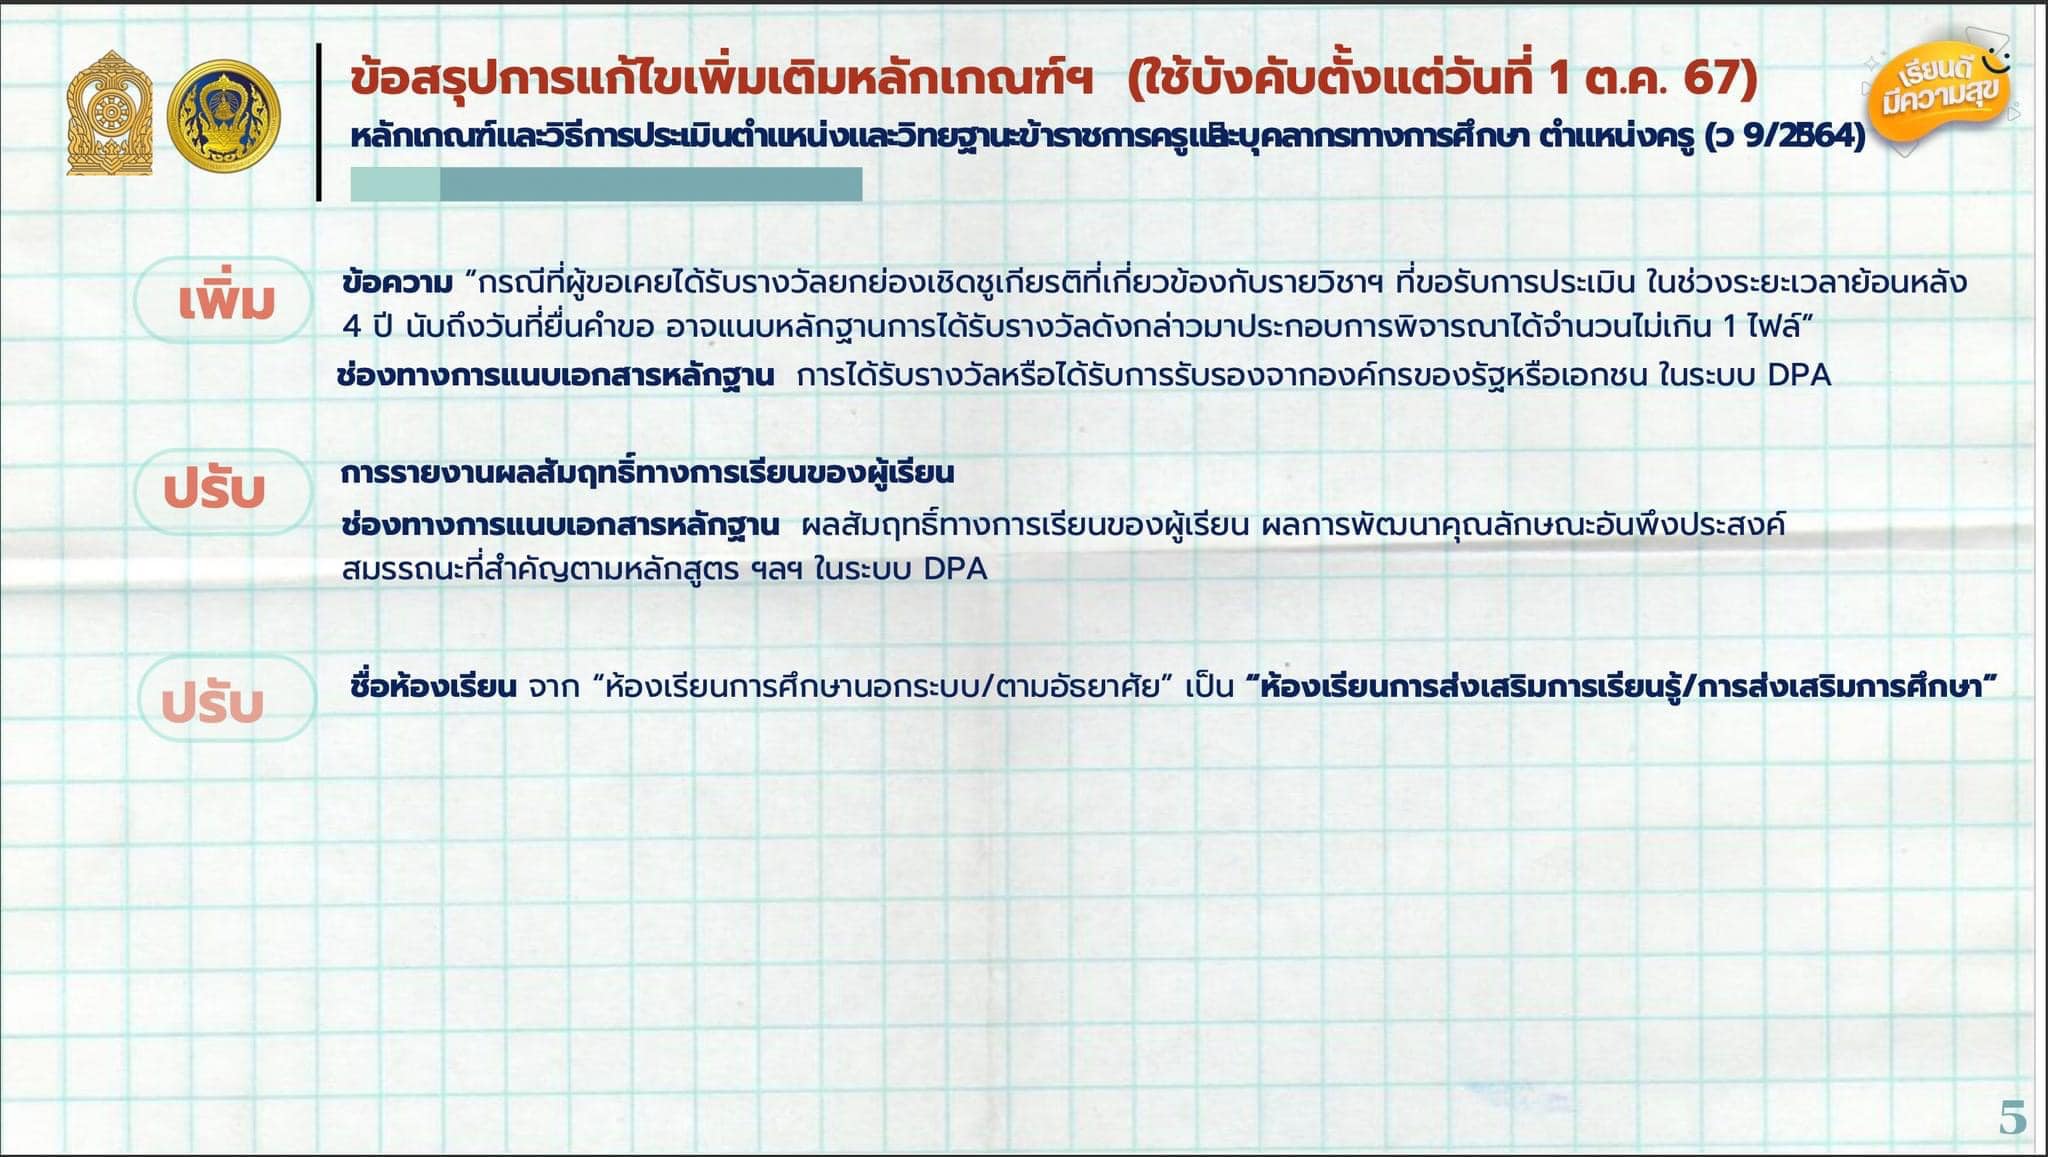 ข้อสรุปการแก้ไขเพิ่มเติมหลักเกณฑ์ฯ (ใช้บังคับตั้งแต่วันที่ 1 ต.ค. 67)
หลักเกณฑ์และวิธีการประเมินตำแหน่งและวิทยฐานะข้าราชการครูและบุคลากรทางการศึกษา ตำแหน่งครู (ว 9/2564)
เรียนดี
มีความสุข
เพิ่ม
ข้อความ “กรณีที่ผู้ขอเคยได้รับรางวัลยกย่องเชิดชูเกียรติที่เกี่ยวข้องกับรายวิชาฯ ที่ขอรับการประเมิน ในช่วงระยะเวลาย้อนหลัง
4 ปี นับถึงวันที่ยื่นคำขอ อาจแนบหลักฐานการได้รับรางวัลดังกล่าวมาประกอบการพิจารณาได้จำนวนไม่เกิน 1 ไฟล์”
ช่องทางการแนบเอกสารหลักฐาน การได้รับรางวัลหรือได้รับการรับรองจากองค์กรของรัฐหรือเอกชน ในระบบ DPA
ปรับ
การรายงานผลสัมฤทธิ์ทางการเรียนของผู้เรียน
ช่องทางการแนบเอกสารหลักฐาน ผลสัมฤทธิ์ทางการเรียนของผู้เรียน ผลการพัฒนาคุณลักษณะอันพึงประสงค์
สมรรถนะที่สำคัญตามหลักสูตร ฯลฯ ในระบบ DPA
ปรับ
ชื่อห้องเรียน จาก “ห้องเรียนการศึกษานอกระบบ/ตามอัธยาศัย” เป็น “ห้องเรียนการส่งเสริมการเรียนรู้/การส่งเสริมการศึกษา”
5